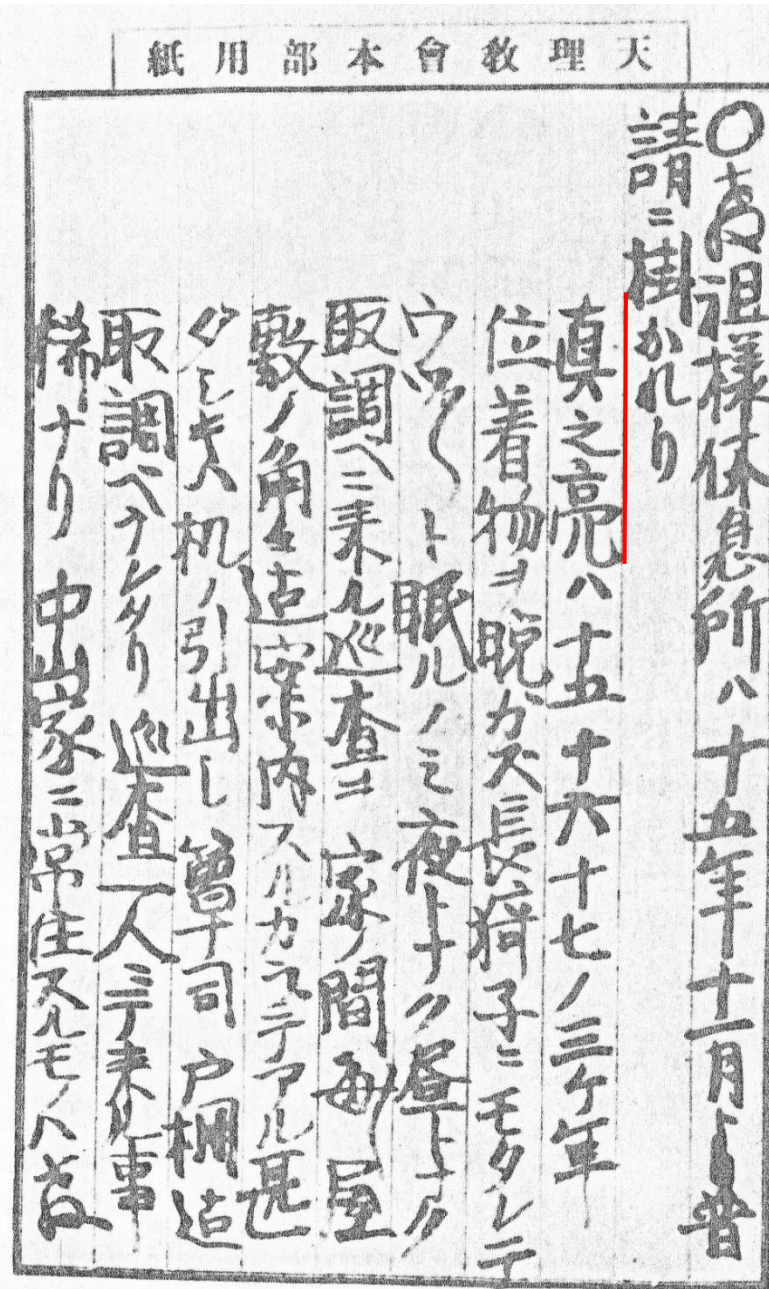 天理教會本部用紙
〇教祖様休息所ハ十五年十一月ヨリ普
請ニ掛かれり
眞之亮ハ十五十六十七ノ三ケ年
位着物ヲ脱カズ長猗子ニモタレテ
ウツ〱ト眠ルノミ夜トナク昼トナク
取調ヘニ来ル巡査ヲ家ノ間毎〱屋
敷ノ角々迠案内スルカラデアル甚
ダシキハ机ノ引出し簞司戸棚迠
取調ベヲレタリ巡査一人ニテ来ル事
稀ナリ中山家ニ常住スルモノハ教